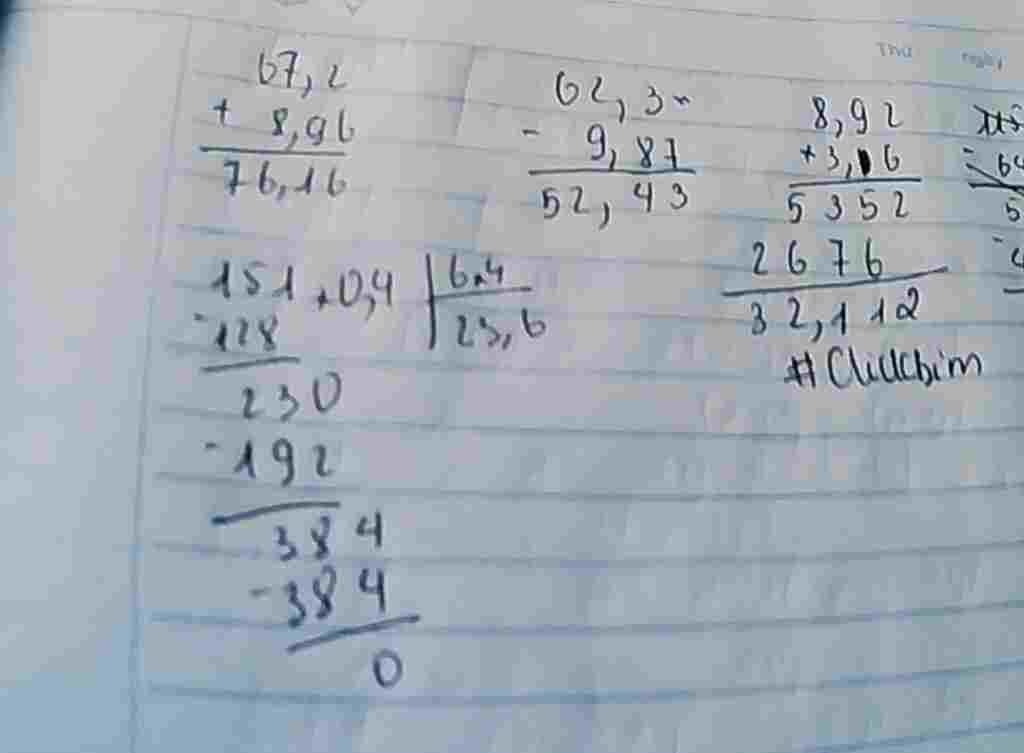 Thứ ngày
67,2
+ 8,96
76,16
62,3
- 9,87
52,43
8,92
+ 3, 6
5352
2676
32,112
#Clickbim
- 64
5
151,0,4 6,4
-128 23,6
230
-192
384
-384
0